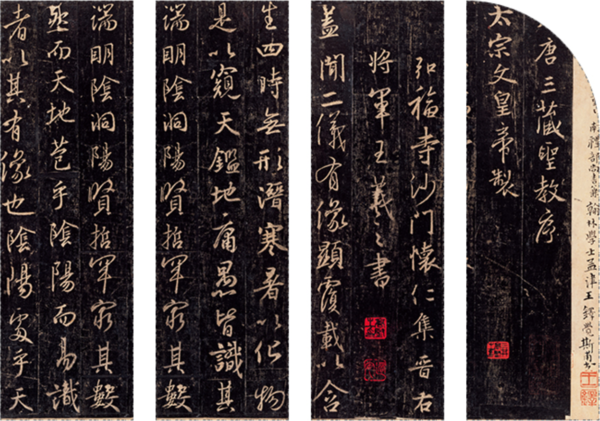 南禮部尚書兼翰林學士孟津王鐸覺斯甫
唐三藏聖教序
太宗文皇帝製
弘福寺沙門懷仁集晉右
將軍王羲之書
蓋聞二儀有像顯覆載以含
生四時無形潛寒暑以化物
是以窺天鑑地庸愚皆識其
端明陰洞陽賢哲罕窮其數
端明陰洞陽賢哲罕窮其數
然而天地苞乎陰陽而易識
者以其有像也陰陽處乎天